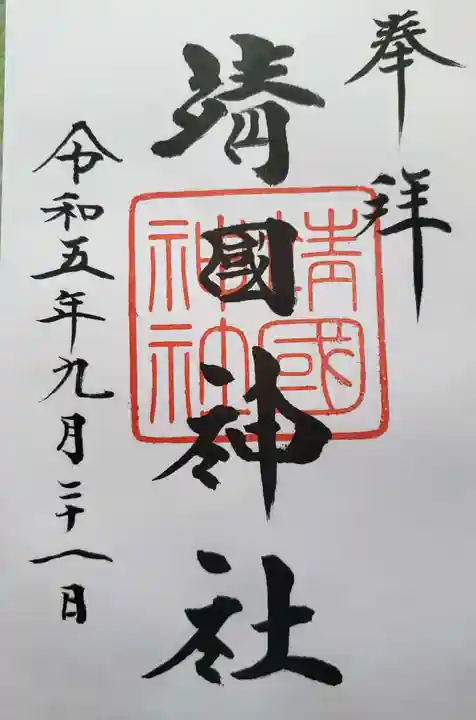 奉拝
靖國神社
靖國神社
令和五年九月二十八日